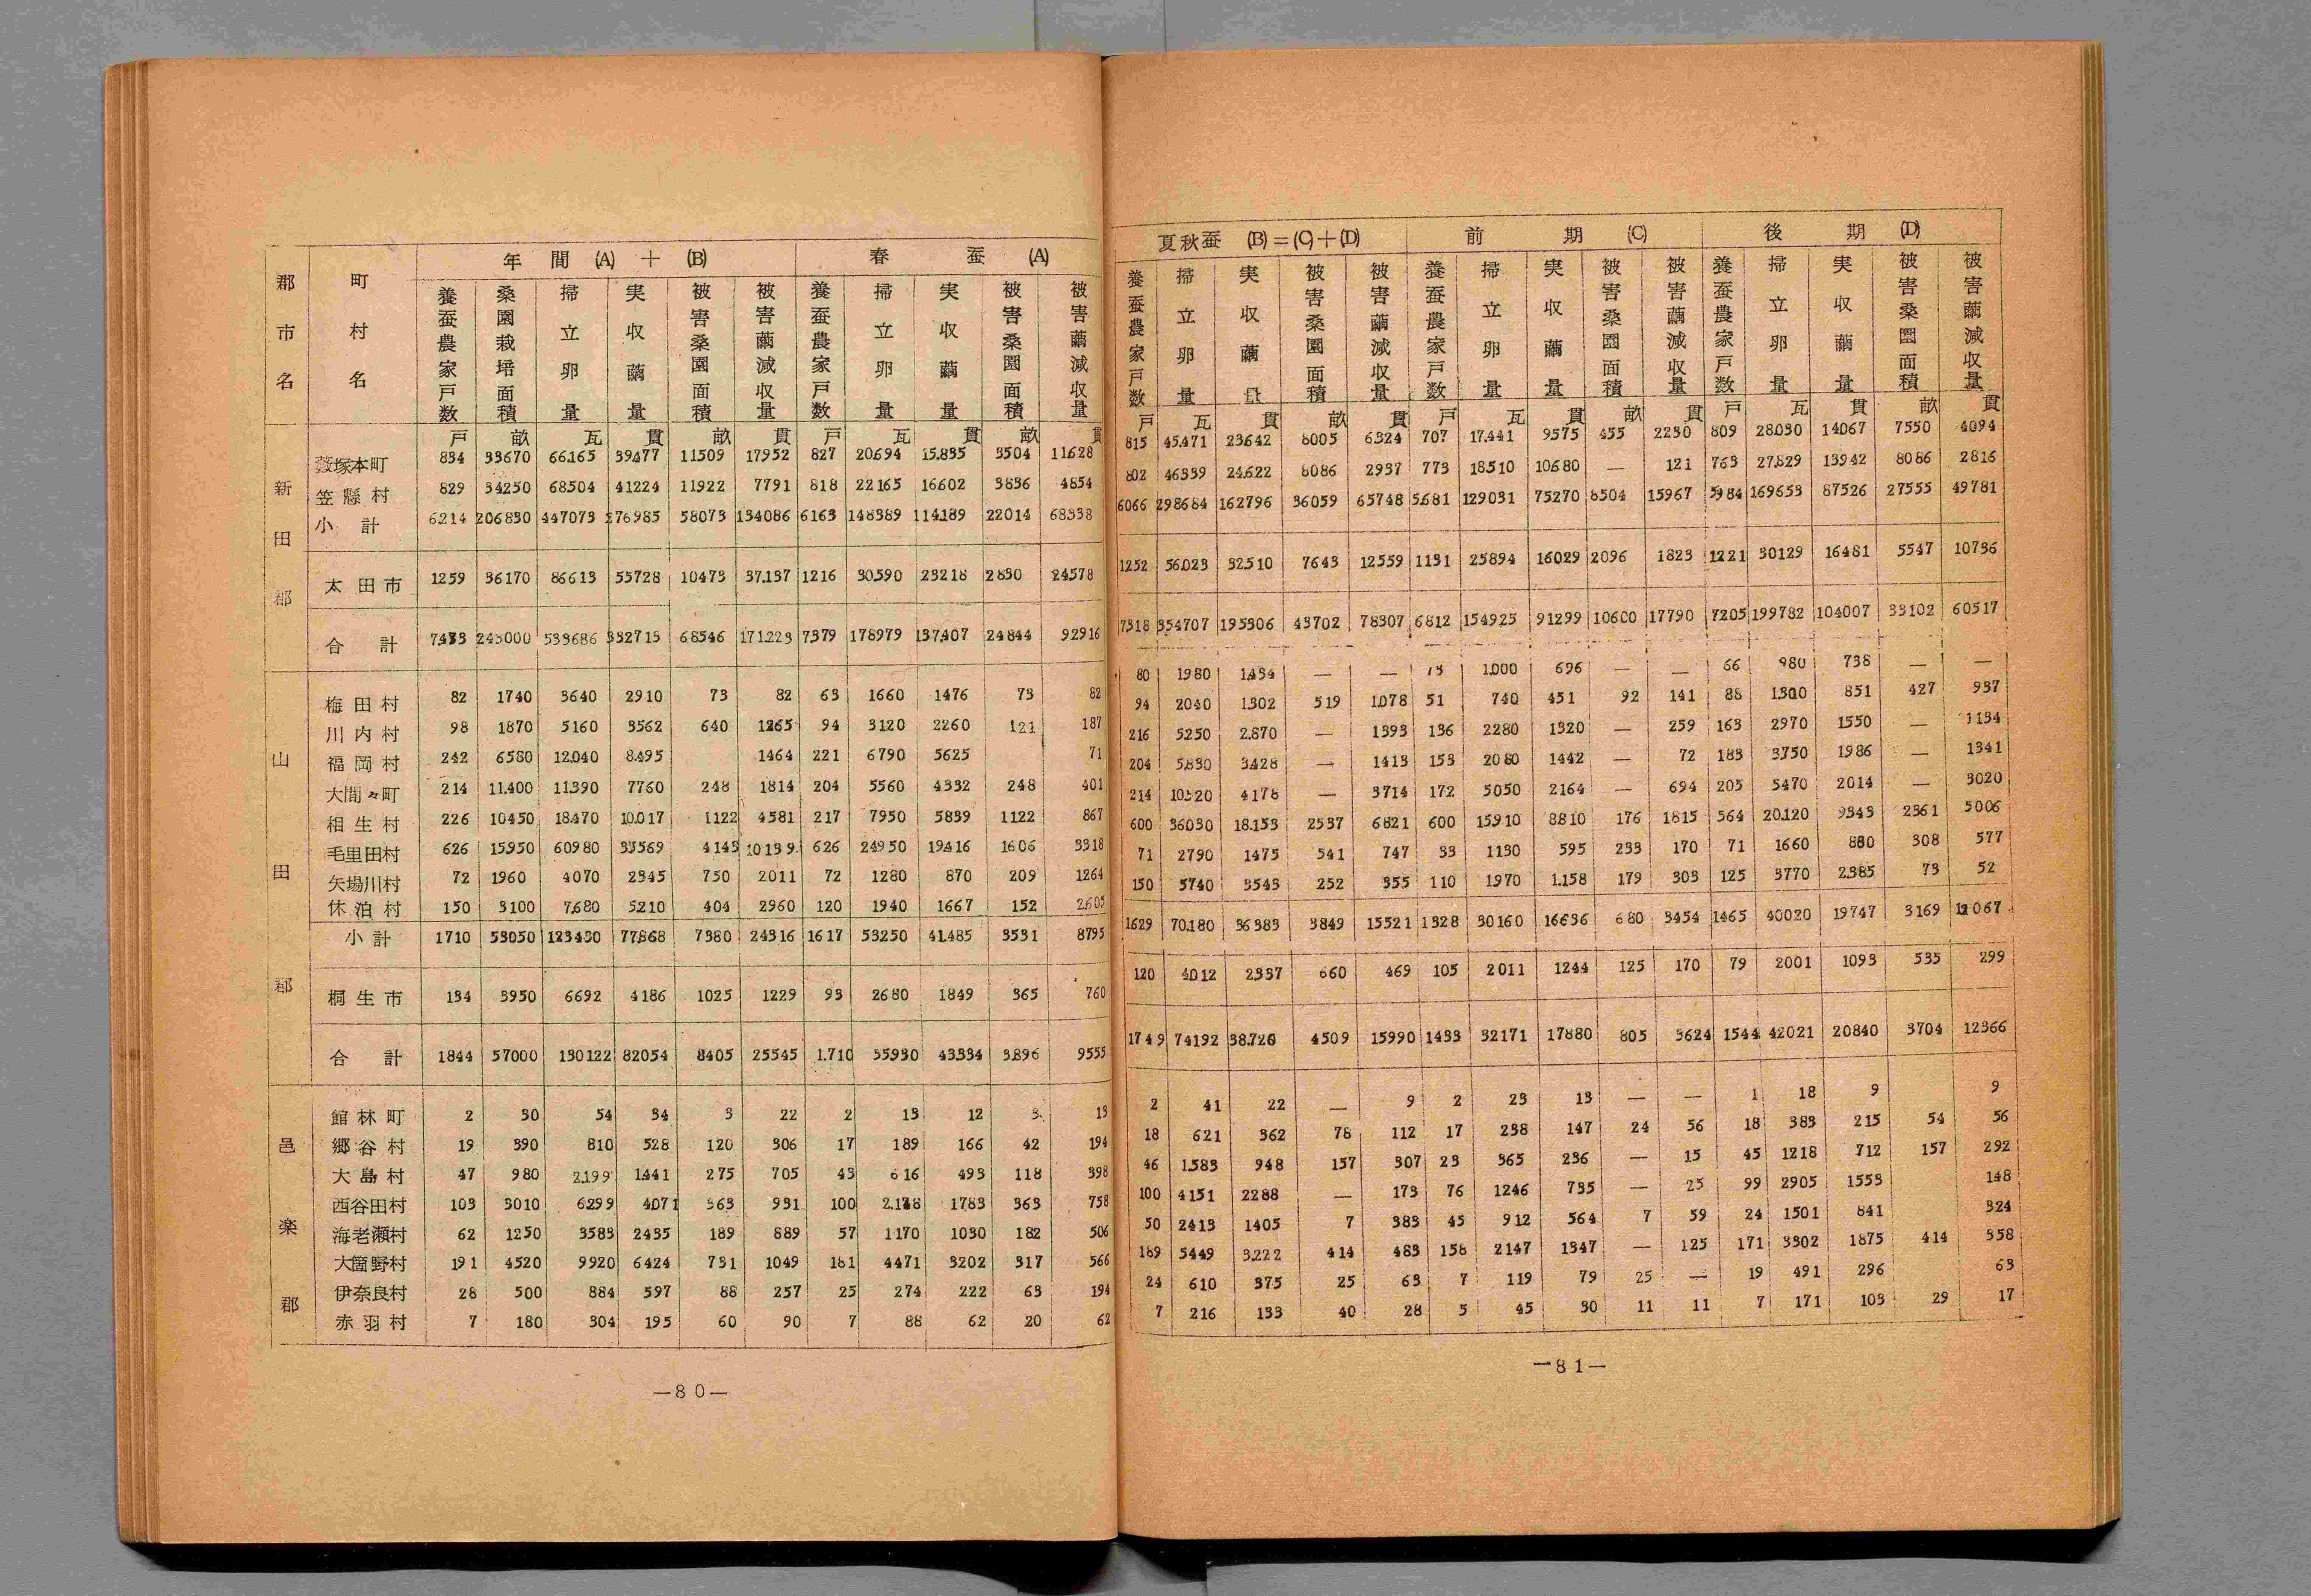 郡市名 町村名 年間(A)+(B) 春蚕(A)
養蚕農家戸数 桑園栽培面積 掃立卵量 実収繭量 被害桑園面積 被害繭減収量 養蚕農家戸数 掃立卵量 実収繭量 被害桑園面積 被害繭減収量
戸 畝 瓦 貫 畝 貫 戸 瓦 貫 畝 貫
新田郡
藪塚本町 834 33670 66.165 39477 11509 17952 827 20.694 15.835 3504 11.628
笠縣村 829 34250 68504 41224 11922 7791 818 22165 16602 3836 4854
小計 6214 206830 447073 276985 58073 134086 6163 148389 114.189 22014 68338
太田市 1259 36170 86613 55728 10473 37.137 1216 30.590 23218 2830 24578
合計 7473 243000 533686 332713 68546 171.223 7379 178979 137.407 24844 92916
山田郡
梅田村 82 1740 3640 2910 73 82 63 1660 1476 73 82
川内村 98 1870 5160 3562 640 1265 94 3120 2260 121 187
福岡村 242 6580 12.040 8.495 1464 221 6790 5625 71
大間々町 214 11.400 11.390 7760 248 1814 204 5560 4332 248 401
相生村 226 10450 18.470 10.017 1122 4581 217 7950 5839 1122 867
毛里田村 626 15.950 60980 33569 4143 10139 626 24950 19.416 1606 3318
矢場川村 72 1960 4070 2345 750 2011 72 1280 870 209 1264
休泊村 150 3100 7.680 5210 404 2960 120 1940 1667 152 2.605
小計 1710 53050 123430 77.868 7380 24316 1617 53250 41.485 3531 8795
桐生市 134 3950 6692 4186 1025 1229 93 2680 1849 365 760
合計 1844 57000 130122 82054 8405 25545 1.710 55930 43334 3.896 9555
邑楽郡
館林町 2 30 54 34 3 22 2 13 12 3 13
郷谷村 19 390 810 528 120 306 17 189 166 42 194
大島村 47 980 2.199 1.441 275 705 43 616 493 118 398
西谷田村 103 3010 6299 4071 363 931 100 2.148 1783 363 758
海老瀬村 62 1250 3583 2435 189 889 57 1170 1030 182 506
大箇野村 191 4520 9920 6424 731 1049 181 4471 3202 317 566
伊奈良村 28 500 884 597 88 257 25 274 222 63 194
赤羽村 7 180 304 195 60 90 7 88 62 20 62
—80—
夏秋蚕 (B)=(C)+(D) 前期(C) 後期(D)
養蚕農家戸数 掃立卵量 実収繭量 被害桑園面積 被害繭減収量 養蚕農家戸数 掃立卵量 実収繭量 被害桑園面積 被害繭減収量 養蚕農家戸数 掃立卵量 実収繭量 被害桑園面積 被害繭減収量
戸 瓦 貫 畝 貫 戸 瓦 貫 畝 貫 戸 瓦 貫 畝 貫
815 45.471 23.642 8005 6.324 707 17.441 9575 455 2230 809 28.030 14067 7550 4094
802 46339 24.622 8086 2937 773 18510 10680 — 121 763 27.829 13942 8086 2816
6066 298684 162796 36059 65748 5.681 129031 75270 8504 15967 5984 169653 87526 27555 49781
1252 56.023 32.510 7643 12559 1131 25894 16029 2096 1823 1221 30129 16481 5547 10736
7318 354707 195306 43702 78307 6812 154925 91299 10600 17790 7205 199782 104007 33102 60517
80 1980 1.434 — — 73 1.000 696 — — 66 980 738 — —
94 2040 1302 519 1.078 51 740 451 92 141 88 1.300 851 427 937
216 5250 2.870 — 1393 136 2280 1320 — 259 163 2970 1550 — 1134
204 5.830 3428 — 1413 153 2080 1442 — 72 183 3750 1986 — 1341
214 10520 4178 — 3714 172 5050 2164 — 694 205 5470 2014 — 3020
600 36030 18.153 2537 6821 600 15.910 8810 176 1815 564 20.120 9343 2361 5006
71 2790 1475 541 747 33 1130 595 233 170 71 1660 880 308 577
150 5740 3543 252 355 110 1.970 1.158 179 303 125 3770 2.385 73 52
1629 70.180 36383 3849 15521 1328 30160 16636 680 3454 1465 40020 19747 3169 12067
120 4012 2337 660 469 105 2011 1244 125 170 79 2001 1093 535 299
1749 74192 38.720 4509 15990 1433 32171 17880 805 3624 1544 42021 20840 3704 12366
2 41 22 — 9 2 23 13 — — 1 18 9 9
18 621 362 78 112 17 238 147 24 56 18 383 215 54 56
46 1.583 948 157 307 23 365 236 — 15 45 1218 712 157 292
100 4151 2288 — 173 76 1246 735 — 25 99 2905 1553 148
50 2413 1405 7 383 45 912 564 7 59 24 1501 841 324
189 5449 3.222 414 483 158 2147 1347 — 125 171 3302 1875 414 358
24 610 375 25 63 7 119 79 25 — 19 491 296 63
7 216 133 40 28 5 45 30 11 11 7 171 103 29 17
—81—